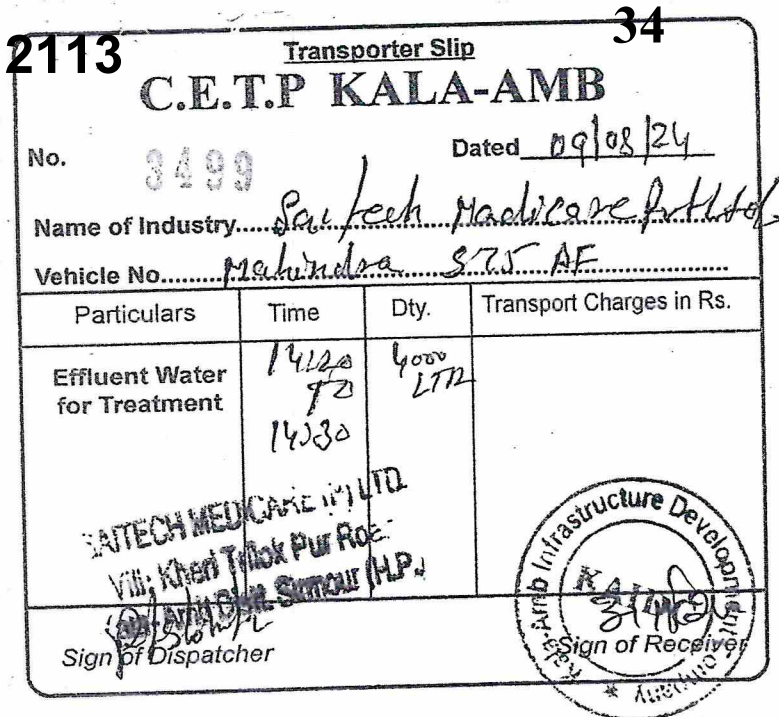 2113
34
Transporter Slip
C.E.T.P KALA-AMB
No. 3499 Dated 09/08/24
Name of Industry..... Saitech Madicare Pvt Ltd
Vehicle No....... Mahindra 575 AF
Particulars Time Dty. Transport Charges in Rs.
Effluent Water for Treatment
14:20 TO 14:30
4000 LTR
SAITECH MEDICARE (P) LTD.
Vill: Kheri Trilok Pur Road
Kala-Amb Distt. Sirmour (H.P.)
Kala-Amb Infrastructure Development Company
Sign of Dispatcher Sign of Receiver